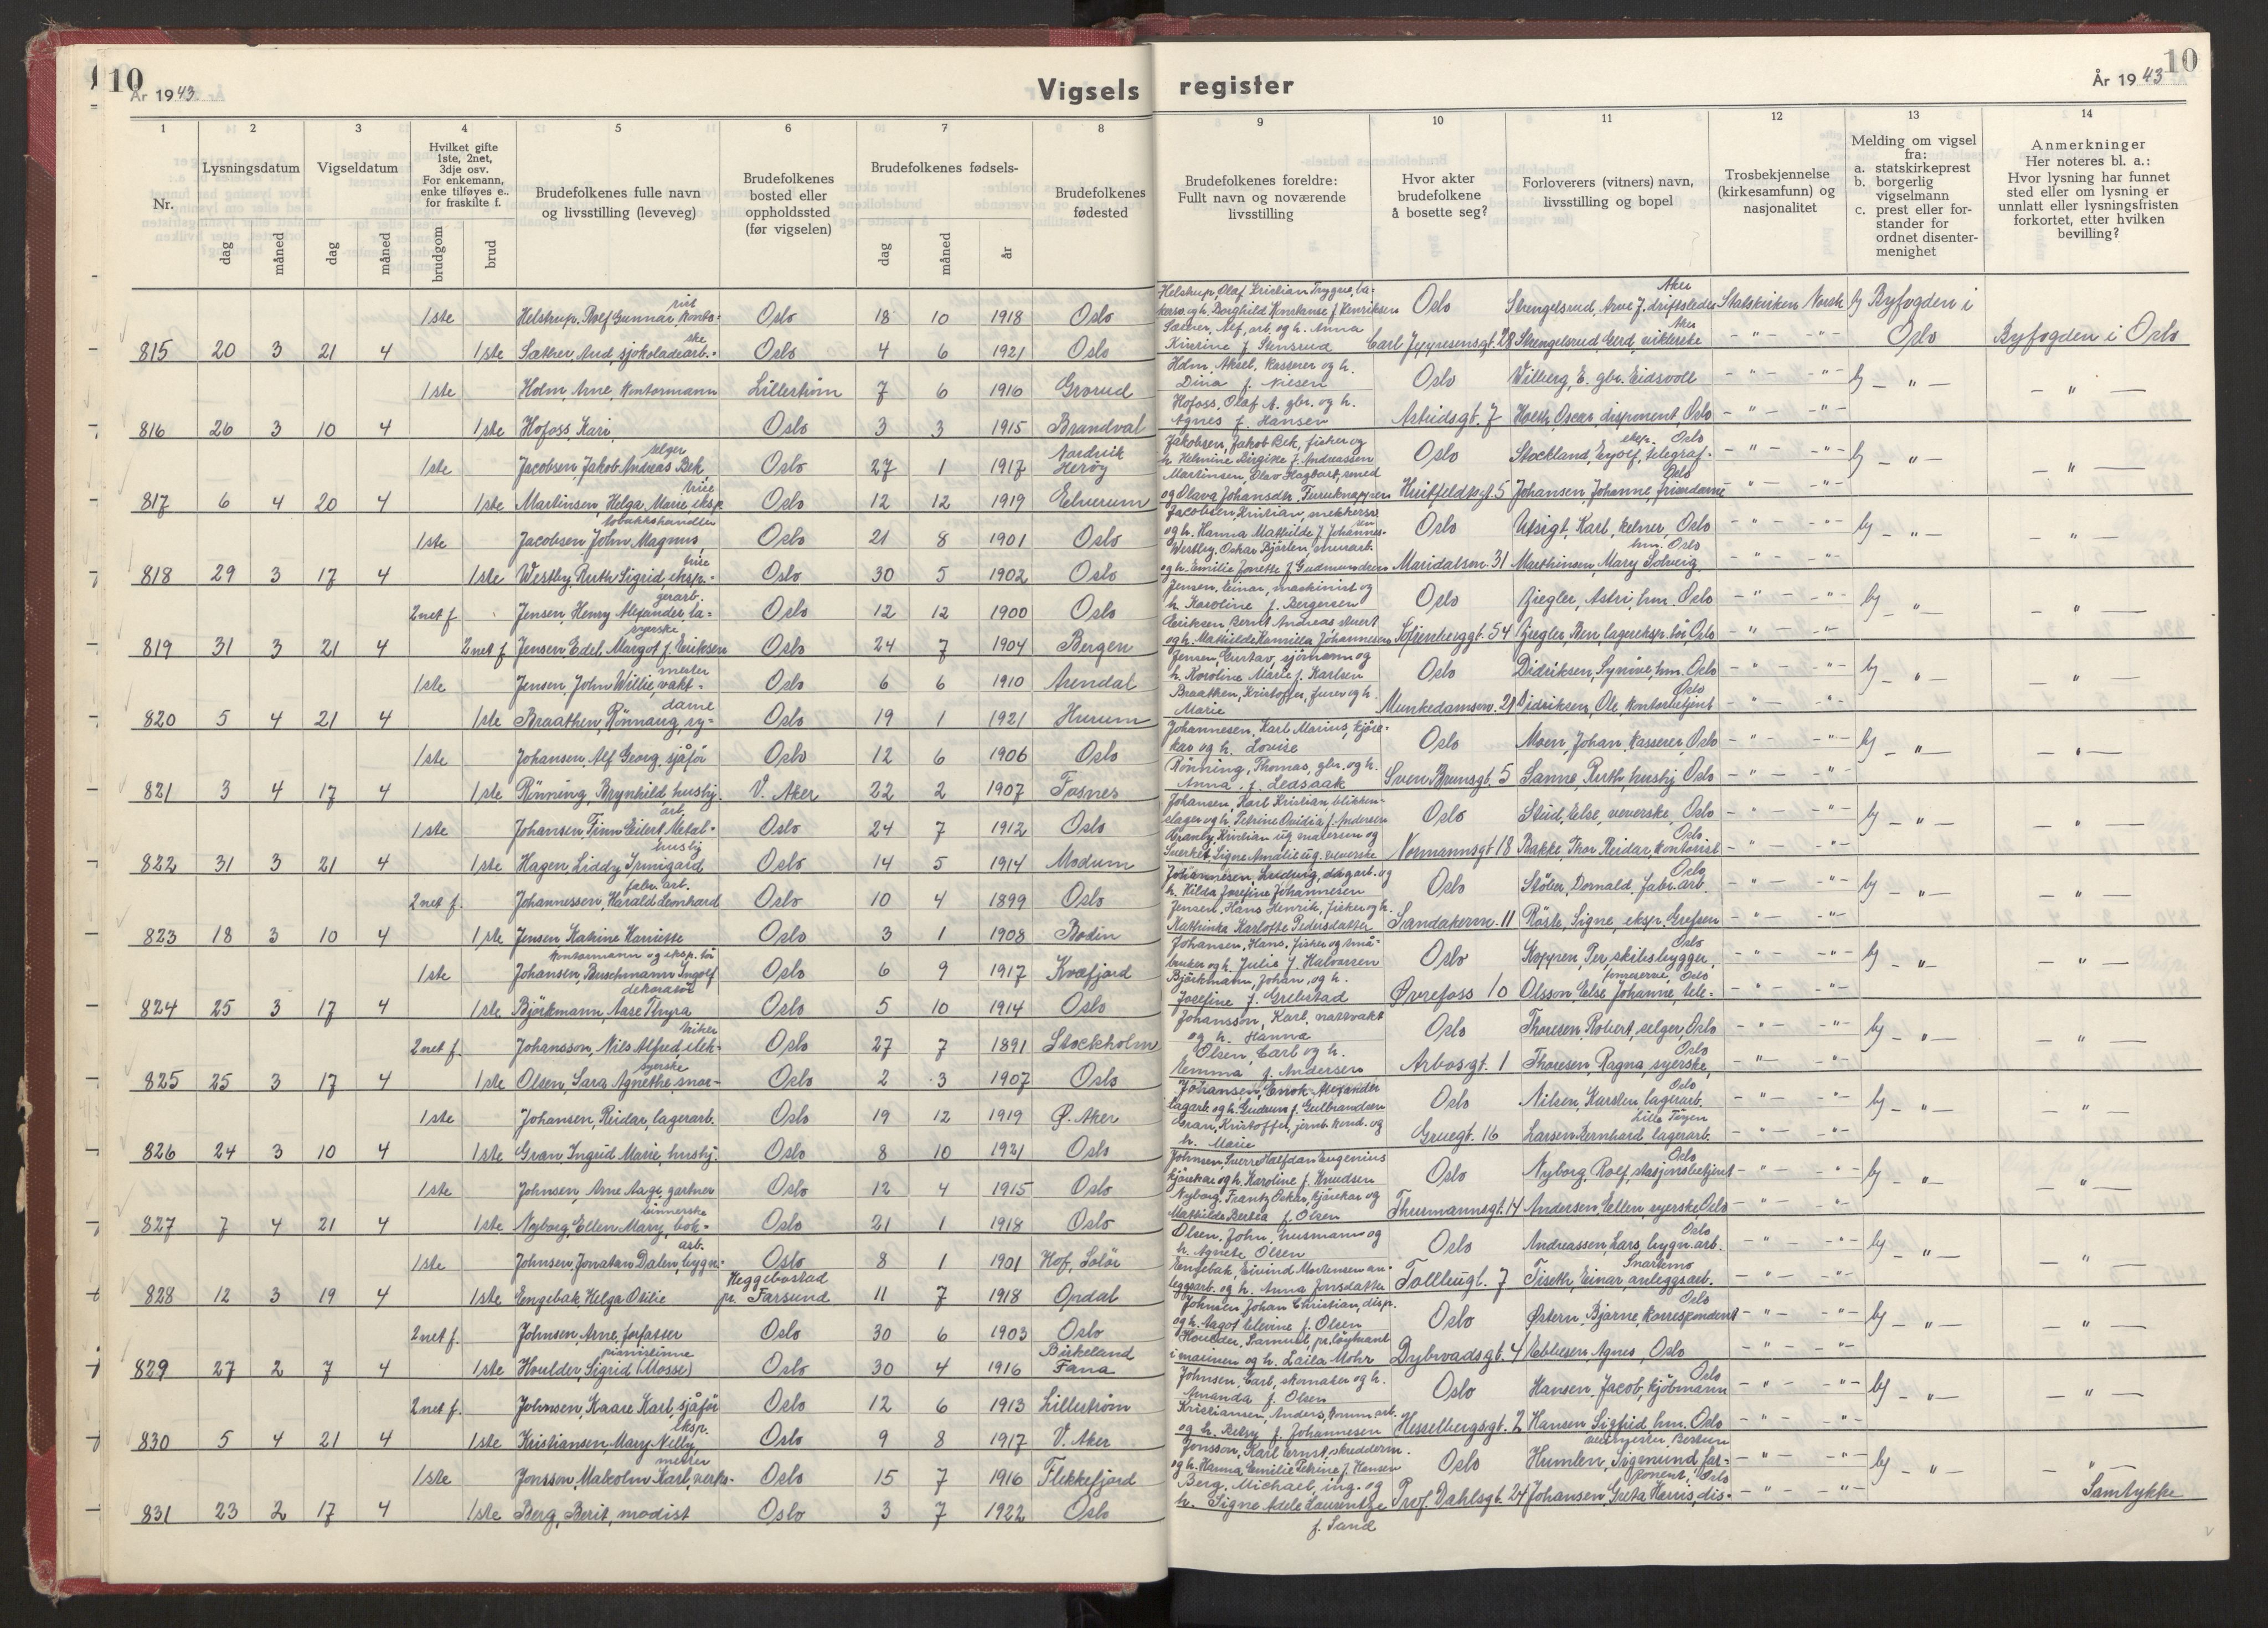 10
År 1943
Vigsels register
År 1943
10
1
2
3
4
5
6
7
8
9
10
11
12
13
14
Nr.
Lysningsdatum
dag
måned
Vigseldatum
dag
måned
Hvilket gifte
1ste, 2net,
3dje osv.
For enkemann,
enke tilføyes e..
for fraskilte f.
brudgom
brud
Brudefolkenes fulle navn
og livsstilling (leveveg)
Brudefolkenes
bosted eller
oppholdssted
(før vigselen)
Brudefolkenes fødsels-
dag
måned
år
Brudefolkenes
fødested
Brudefolkenes foreldre:
Fullt navn og noværende
livsstilling
Hvor akter
brudefolkene
å bosette seg?
Forloverers (vitners) navn,
livsstilling og bopel
Trosbekjennelse
(kirkesamfunn) og
nasjonalitet
Melding om vigsel
fra:
a. statskirkeprest
b. borgerlig
vigselmann
c. prest eller for-
stander for
ordnet disenter-
menighet
Anmerkninger
Her noteres bl. a.:
Hvor lysning har funnet
sted eller om lysning er
unnlatt eller lysningsfristen
forkortet, etter hvilken
bevilling?
1ste Helstrup, Rolf Gunnar, konto- rist Oslo 18 10 1918 Oslo Helstrup, Olaf Kristian Trygve, og h. Borghild Konstanse f. Henriksen Oslo Stengelsrud, Arne J. driftsleder Aker Statskirken Norsk b Byfogden i
815 20 3 21 4 1ste Sæther, Aud sjokoladearb.- ske Oslo 4 6 1921 Oslo Sæther, Alf, arb. og h. Anna Kristine f. Stensrud Carl Jeppesensgt. 28 Stengelsrud, Gerd, Aker - " - - " - Oslo Byfogden i Oslo
1ste Holm, Arne, kontormann Lillestrøm 7 6 1916 Grorud Holm, Aksel, kasserer og h. Dina f. Nilsen Oslo Wilberg, E. gbr. Eidsvoll - " - - " - b - " - - " -
816 26 3 10 4 1ste Hofoss, Kari, Oslo 3 3 1915 Brandval Hofoss, Olaf A. gbr. og h. Agnes f. Hansen Arbeidsgt. 7 Holth, Oscar disponent, Oslo - " - - " -
1ste Jacobsen, Jakob Andreas Bek selger Oslo 27 1 1917 Nordvik Herøy Jakobsen, Jakob Bek, fisker og h. Helmine Birgitte f. Andreassen Oslo Stockland, Eyolf, telegraf- eksp. Oslo - " - - " - b - " - - " -
817 6 4 20 4 1ste Martinsen, Helga Marie, eksp. trise Oslo 12 12 1919 Elverum Martinsen, Olav Hagbart, smed og Olava Johansdtr. Furuknappen Huitfeldtsgt. 5 Johansen, Johanne, frisørdame Oslo - " - - " -
1ste Jacobsen John Magnus, tobakkshandler Oslo 21 8 1901 Oslo Jacobsen, Kristian, snekkersv. og h. Hanna Mathilde f. Johannes- sen Oslo Utsigt, Karl, kelner, Oslo - " - - " - b - " - - " -
818 29 3 17 4 1ste Westby, Ruth Sigrid, eksp.- trise Oslo 30 5 1902 Oslo Westby, Oskar Bjarten, murarb. og h. Emilie Jonette f. Gudmundsen Maridalsvn. 31 Marthinsen, Mary Solveig hm. Oslo - " - - " -
2net f Jensen, Henry Alexander, la- gerarb. Oslo 12 12 1900 Oslo Jensen, Einar, maskinist og h. Karoline f. Bergersen Oslo Ziegler, Astri, hm. Oslo - " - - " - b - " - - " -
819 31 3 21 4 2net f Jensen Edel, Margot f. Eriksen syerske Oslo 24 7 1904 Bergen Eriksen Bernt Andreas stuert og h. Mathilde Kamilla Johannesen Sofienberggt. 54 Ziegler, Ben, lagereksp.tør, Oslo - " - - " -
1ste Jensen, John Willie, vakt- mester Oslo 6 6 1910 Arendal Jensen, Gustav, sjømann og h. Karoline Marie f. Karlsen Oslo Didriksen, Synøve hm. Oslo - " - - " - b - " - - " -
820 5 4 21 4 1ste Braathen, Rønnaug, sy- dame Oslo 19 1 1921 Hurum Braathen, Kristoffer, og h. Marie Munkedamsvn. 21 Didriksen, Ole, kontorbetjent Oslo - " - - " -
1ste Johansen, Alf Georg, sjåfør Oslo 12 6 1906 Oslo Johannesen, Karl Marius, kjøre- kar og h. Lovise Oslo Moen, Johan, kasserer, Oslo - " - - " - b - " - - " -
821 3 4 17 4 1ste Rønning, Brynhild hushj. V. Aker 22 2 1907 Fosnes Rønning, Thomas, gbr. og h. Anna f. Ledsaak Sven Brunsgt. 5 Sanne, Ruth, hushj. Oslo - " - - " -
1ste Johansen, Finn Eilert Metal- arb. Oslo 24 7 1912 Oslo Johansen, Karl Kristian, blikken- slager og h. Petrine f. Andersen Oslo Stud, Else, veverske, Oslo - " - - " - b - " - - " -
822 31 3 21 4 1ste Hagen, Liddy Irmigard hushj. Oslo 14 5 1914 Modum Kristian ug. malersv. og Signe Amalie ug. veverske Normannsgt. 18 Bakke, Thor Reidar, kontorist Oslo - " - - " -
2net f. Johannessen, Harald Leonhard fabr. arb. Oslo 10 4 1899 Oslo Johannesen, Ludvig, dagarb. og h. Hilda Josefine Johannesen Oslo Støber, Dornald, fabr. arb. Oslo - " - - " - b - " - - " -
823 18 3 10 4 1ste Jensen Katrine Harriette Oslo 3 1 1908 Bodin Jensen, Hans Henrik, fisker og h. Kathinka Karlotte Pedersdatter Sandakervn. 11 Røste, Signe, eksp. Grefsen - " - - " -
1ste Johansen, Buschmann Ingolf kontormann og eksp. tør Oslo 6 9 1917 Kvæfjord Johansen, Hans, fisker og små- bruker og h. Julie f. Halvorsen Oslo Koppren, Per, skibsbygger, Oslo - " - - " - b - " - - " -
824 25 3 17 4 1ste Björkmann, Aase Thyra dekoratør Oslo 5 10 1914 Oslo Björkmann, Johan, og h. Josefine f. Grebstad Øvrefoss 10 Olsson, Else Johanne, tele- Oslo - " - - " -
2net f. Johansson, Nils Alfred, elek- triker Oslo 27 7 1891 Stockholm Johansson, Karl, nattvakt og h. Hanna Oslo Thoresen, Robert, selger, Oslo - " - - " - b - " - - " -
825 25 3 17 4 1ste Olsen, Sara Agnethe, snor- syerske Oslo 2 3 1907 Oslo Olsen, Carl og h. Emma f. Andersen Arbosgt. 1 Thoresen, Ragna, syerske, Oslo - " - - " -
1ste Johansen, Reidar, lagerarb. Oslo 19 12 1919 Ø. Aker Johansen, Enok Alexander lagarb. og h. Gudrun f. Gulbrandsen Oslo Nilsen, Karsten lagerarb. Oslo - " - - " - b - " - - " -
826 24 3 10 4 1ste Gran, Ingrid Marie, hushj. Oslo 8 10 1921 Oslo Gran, Kristoffer, jernb. kond. og h. Marie Gruegt. 16 Larsen Bernhard lagerarb. Lille Tøyen - " - - " -
1ste Johnsen, Arne Aage, gartner Oslo 12 4 1915 Oslo Johnsen, Sverre Halfdan Eugenius kjørekar og h. Karoline f. Knudsen Oslo Nyborg, Rolf, stasjonsbetjent Oslo - " - - " - b - " - - " -
827 7 4 21 4 1ste Nyborg, Ellen Mary, bok- binnerske Oslo 21 1 1918 Oslo Nyborg, Frantz Oskar, kjørekar og Mathilde Bertia f. Olsen Thurmannsgt. 14 Andersen, Ellen, syerske Oslo - " - - " -
1ste Johnsen, Jonatan Dalen, bygn.- arb. Oslo 8 1 1901 Hof, Solør Olsen, John, husmann og h. Agnete Olsen Oslo Andreassen, Lars, bygn. arb. Oslo - " - - " - b - " - - " -
828 12 3 19 4 1ste Engebak, Helga Otilie Heggebostad pr. Farsund 11 7 1918 Opdal Engebak, Eivind Mortensen an- leggsarb. og h. Anna Jonsdatter Tollbugt. 7 Tiseth, Einar, anleggsarb. Snartemo - " - - " -
2net f. Johnsen, Arne, forfatter Oslo 30 6 1903 Oslo Johnsen, Johan Christian, disp. og h. Aagot Elevine f. Olsen Oslo Østern, Bjarne, korrespondent Oslo - " - - " - b - " - - " -
829 27 2 7 4 1ste Houlder, Sigrid (Mosse) pianistinne Oslo 30 4 1916 Birkeland Fana Houlder, Samuel, pr. løytnant i marinen og h. Laila Mohr Dybwadsgt. 4 Ebbesen, Agnes, Oslo - " - - " -
2net f. Johnsen, Kaare Karl, sjåfør Oslo 12 6 1913 Lillestrøm Johnsen, Carl, skomaker og h. Amanda f. Olsen Oslo Hansen, Jacob, kjøbmann Oslo - " - - " - b - " - - " -
830 5 4 21 4 1ste Kristiansen, Mary Nelly, eksp. Oslo 9 8 1917 V. Aker Kristiansen, Anders, komm. arb. og h. Betsy f. Johannesen Hesselbergsgt. 2 Hansen Sigfrid, hm. Oslo - " - - " -
1ste Jonsson, Malcolm Karl, verks- mester Oslo 15 7 1916 Flekkefjord Jonsson, Karl Ernst, skredderm. og h. Hanna Emilie Petrine f. Hansen Oslo Humlen, Sigmund, for- Bærum - " - - " - b - " - - " -
831 23 2 17 4 1ste Berg, Berit, modist Oslo 3 7 1922 Oslo Berg, Michael, ing. og h. Signe Adele Laurentze f. Sand Prof. Dahlsgt. 24 Johansen, Greta Harris, dis- ponent, Oslo - " - - " - Samtykke